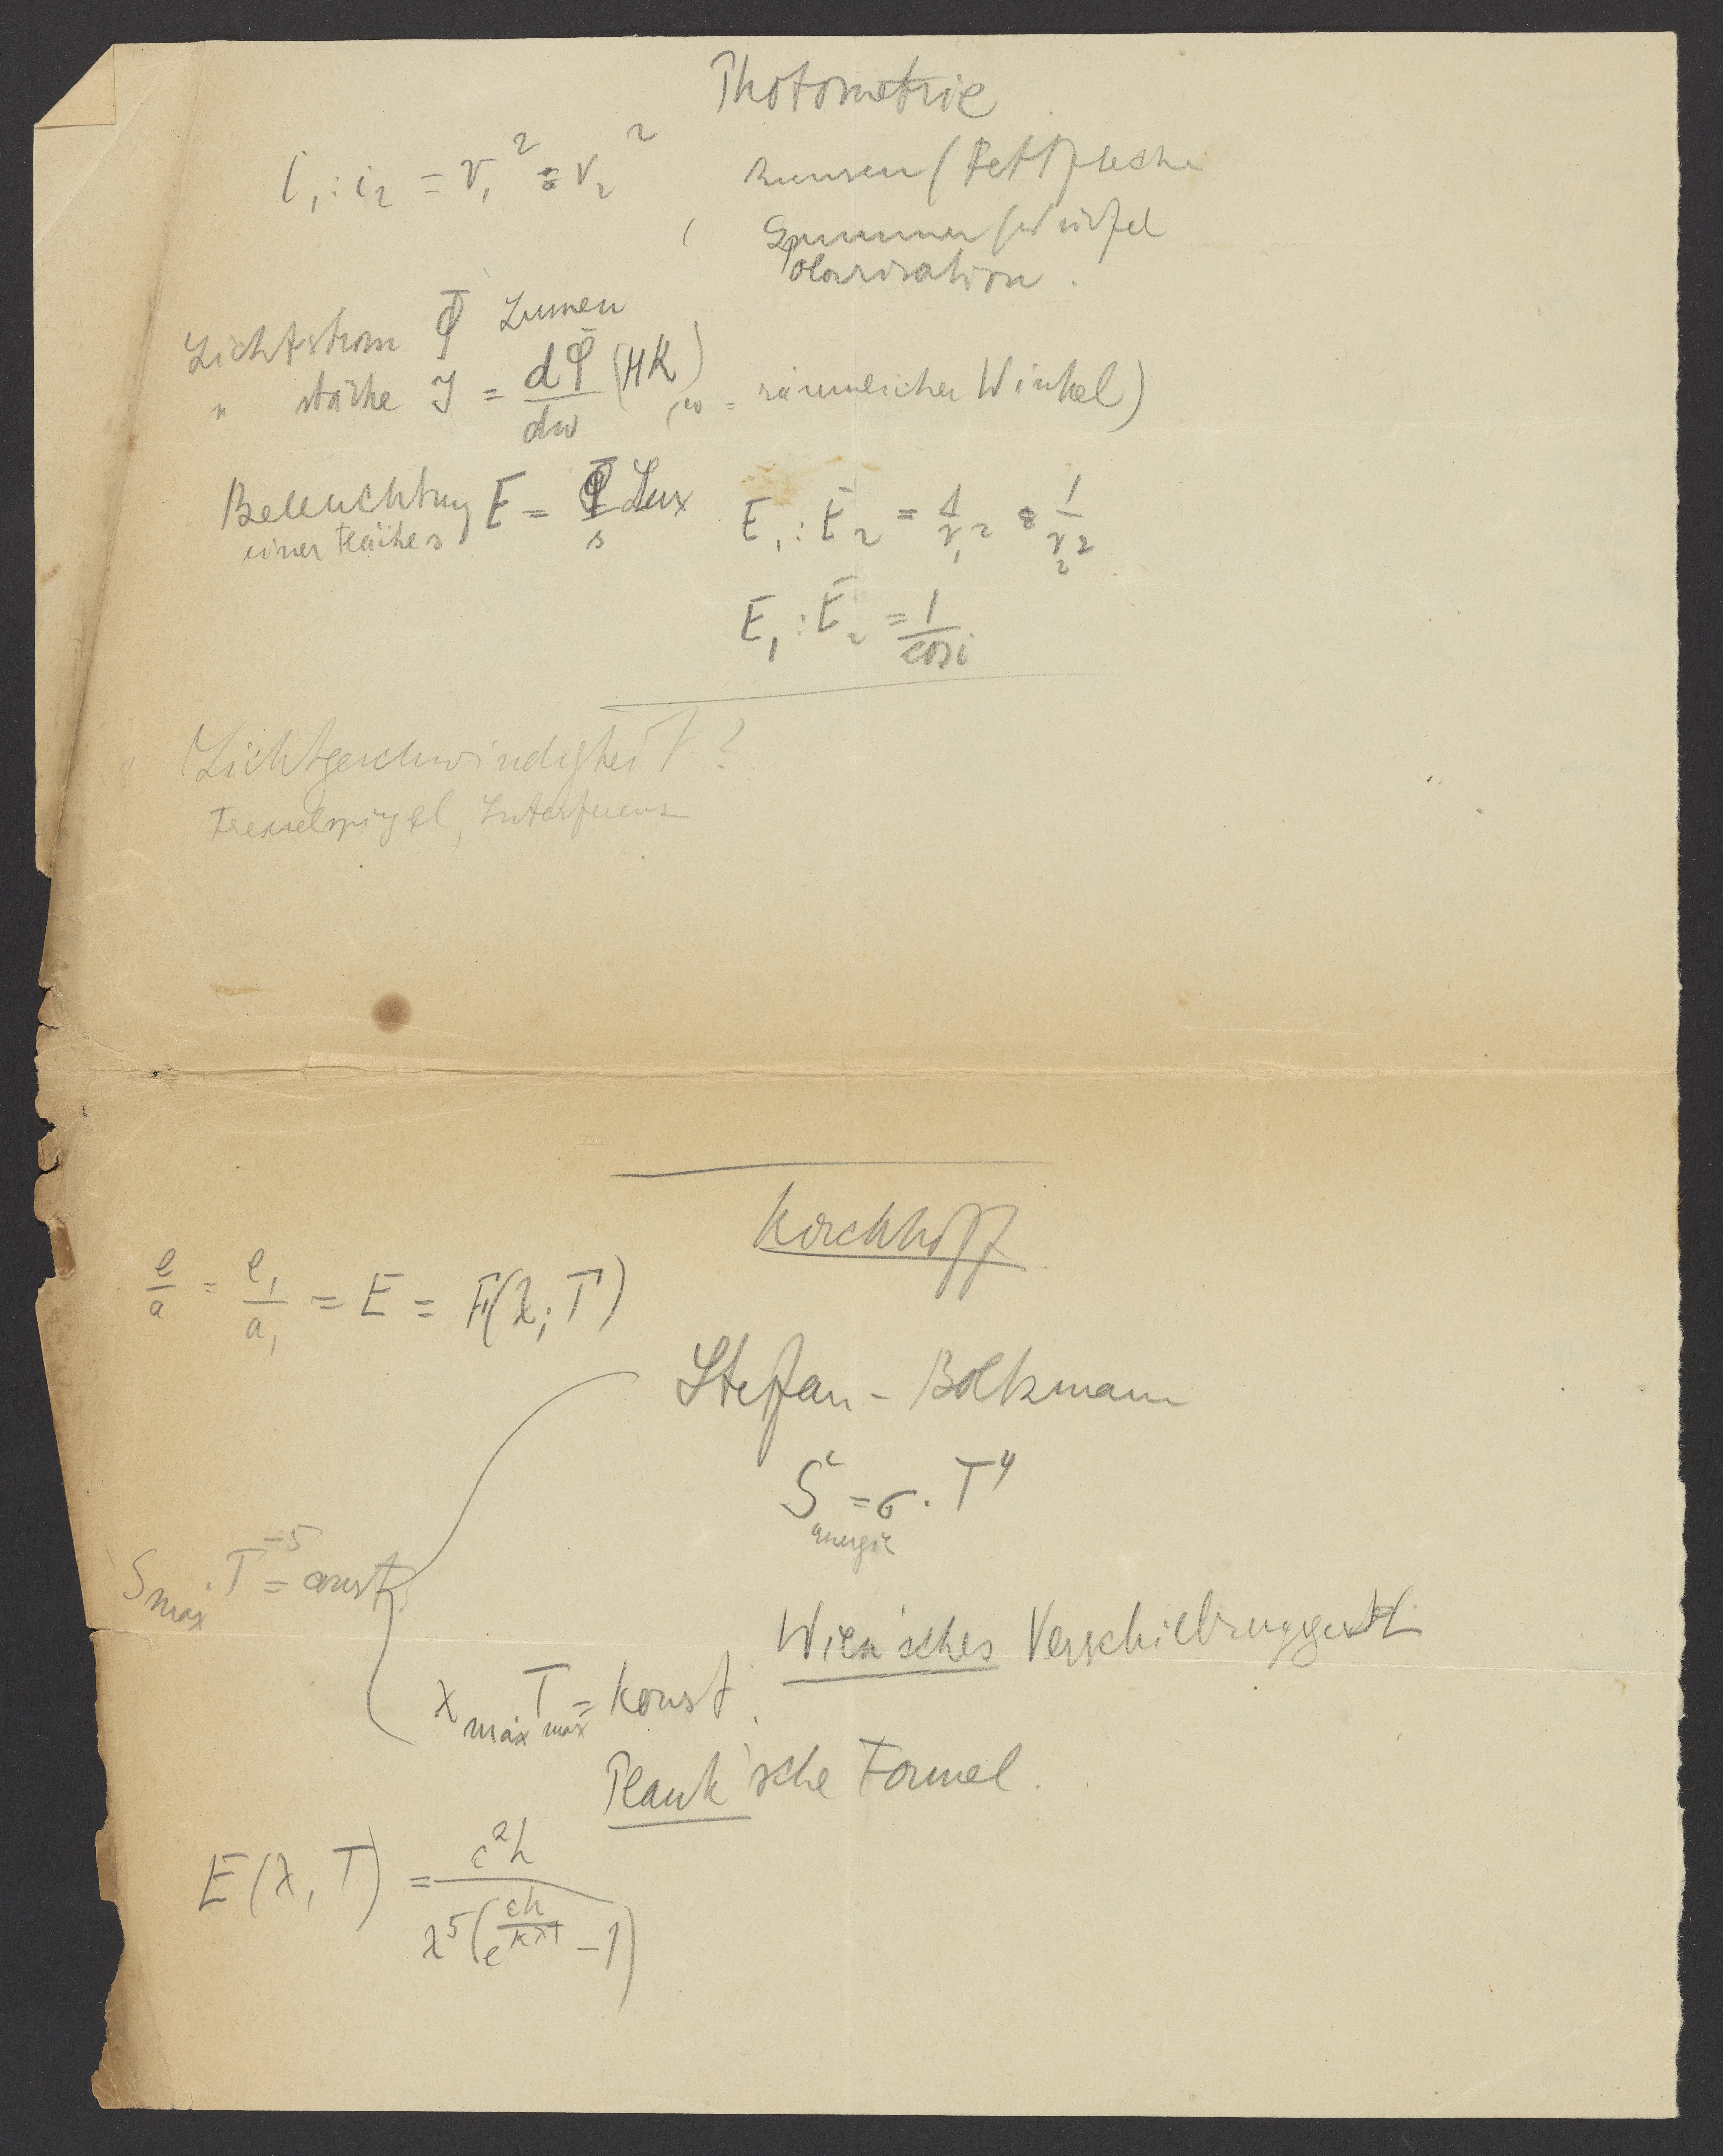 Photometrie
i₁ : i₂ = r₁² : r₂²
Bunsen (Fettflecke
Brummer (Würfel
Polarisation.
Lichtstrom Φ Lumen
" stärke J = dΦ/dω (HK) (ω = räumlicher Winkel)
Beleuchtung E = Φ/s Lux
einer Fläche s
E₁ : E₂ = 1/r₁² : 1/r₂²
E₁ : E₂ = 1/cos i
Lichtgeschwindigkeit ?
Fresnelspiegel, Interferenz
Kirchhoff
e/a = e₁/a₁ = E = F(λ; T)
Steffan - Boltzmann
S = σ . T⁴
energie
S max . T⁻⁵ = const.
Wien'sches Verschiebungsgesetz
λ max T max = konst.
Plank'sche Formel.
E(λ, T) = c²h / λ⁵(e^(ch/kλT) - 1)